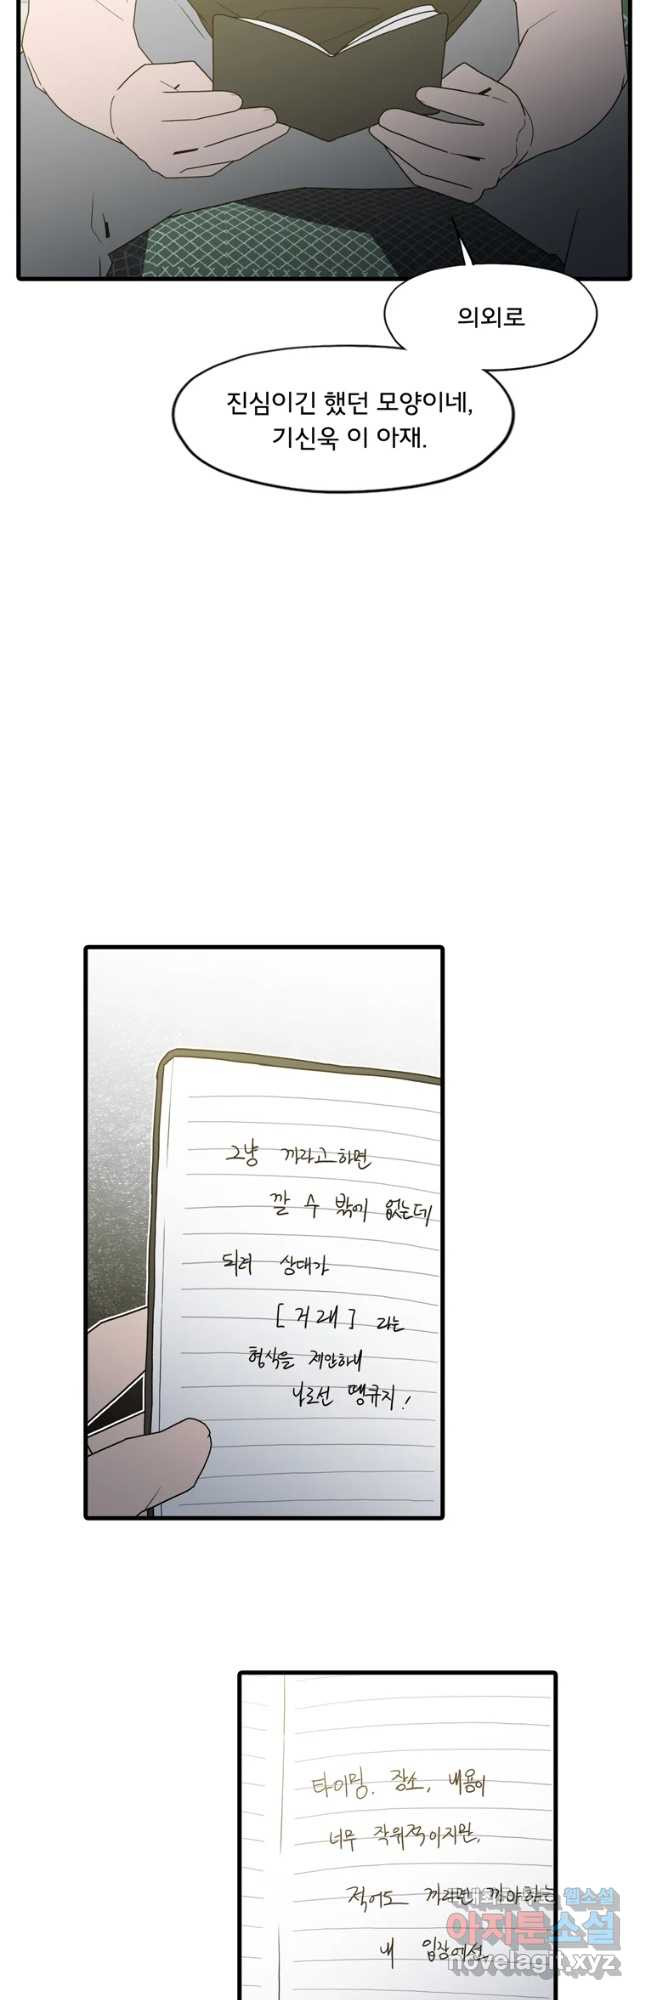 의외로
진심이긴 했던 모양이네,
기신욱 이 아재.
그냥 까라고하면
깔 수 밖에 없는데
되려 상대가
[거래] 라는
형식을 제안하니
나로선 땡큐지!
타이밍. 장소. 내용이
너무 작위적이지만,
적어도 까라면 까야하는
내 입장에선
웹소설
아지툰소설
novelagit.xyz